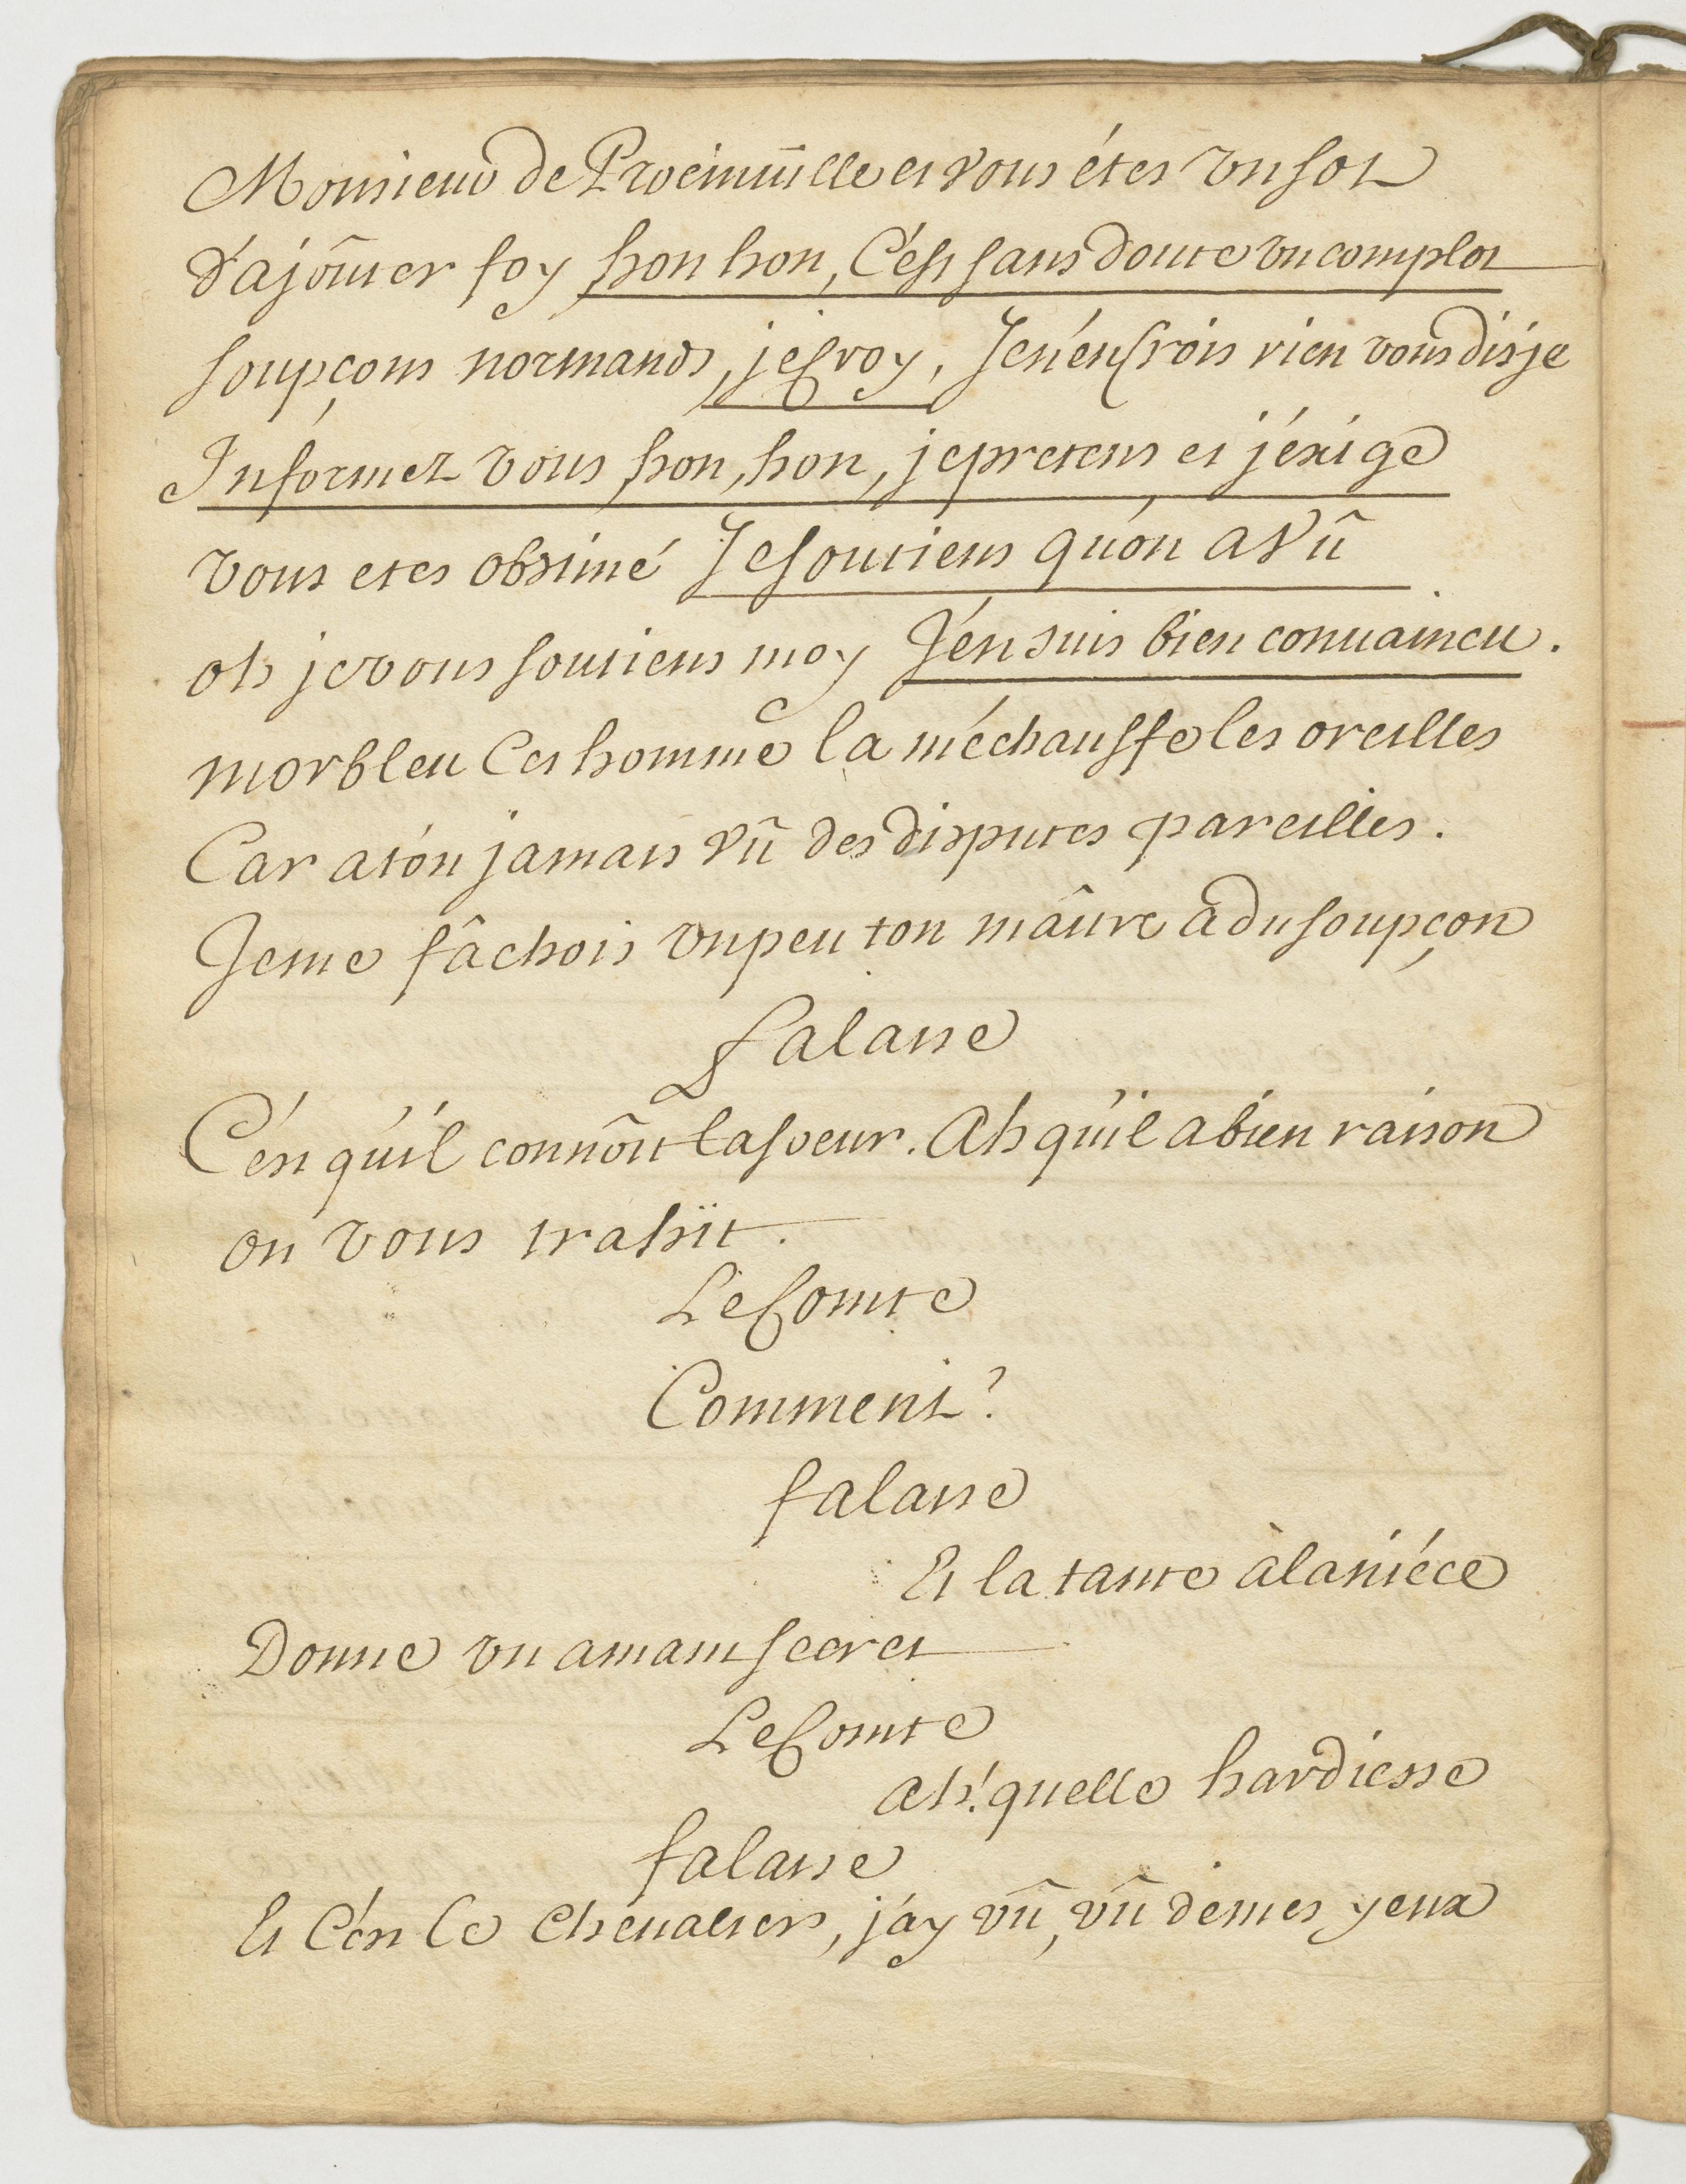 Monsieur de Procinville et vous étes un sot
d'ajoûter foy hon hon, C'ést sans doute un complot
soupçons normands, je Croy, Je n'én Crois rien vous dis je
Informez vous hon, hon, je pretens et j'éxige
vous etes obstiné Je soutiens qu'on a vû
oh je vous soutiens moy J'én suis bien convaincu.
morbleu Cet homme la m'échauffe les oreilles
Car at'on jamais vû des disputes pareilles.
Je me fâchois un peu ton maître a du soupçon
falaise
C'ést qu'il connôit la soeur. Ah qu'il a bien raison
on vous trahït.
Le Comte
Comment?
falaise
Et la tante à la niéce
Donne un amant secret
Le Comte
ah! quelle hardiesse
falaise
Et C'ést le Chevalier, j'ay vû, vû de mes yeux